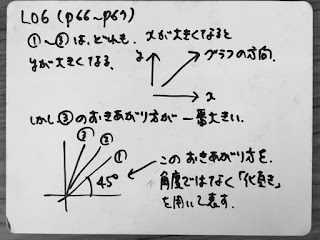 LOG (p66~p69)
①~③は、どれも、xが大きくなると
yが大きくなる。
y
グラフの方向
x
しかし③のおきあがり方が一番大きい。
③
②
①
45°
このおきあがり方を、
角度ではなく「傾き」
を用いて表す。